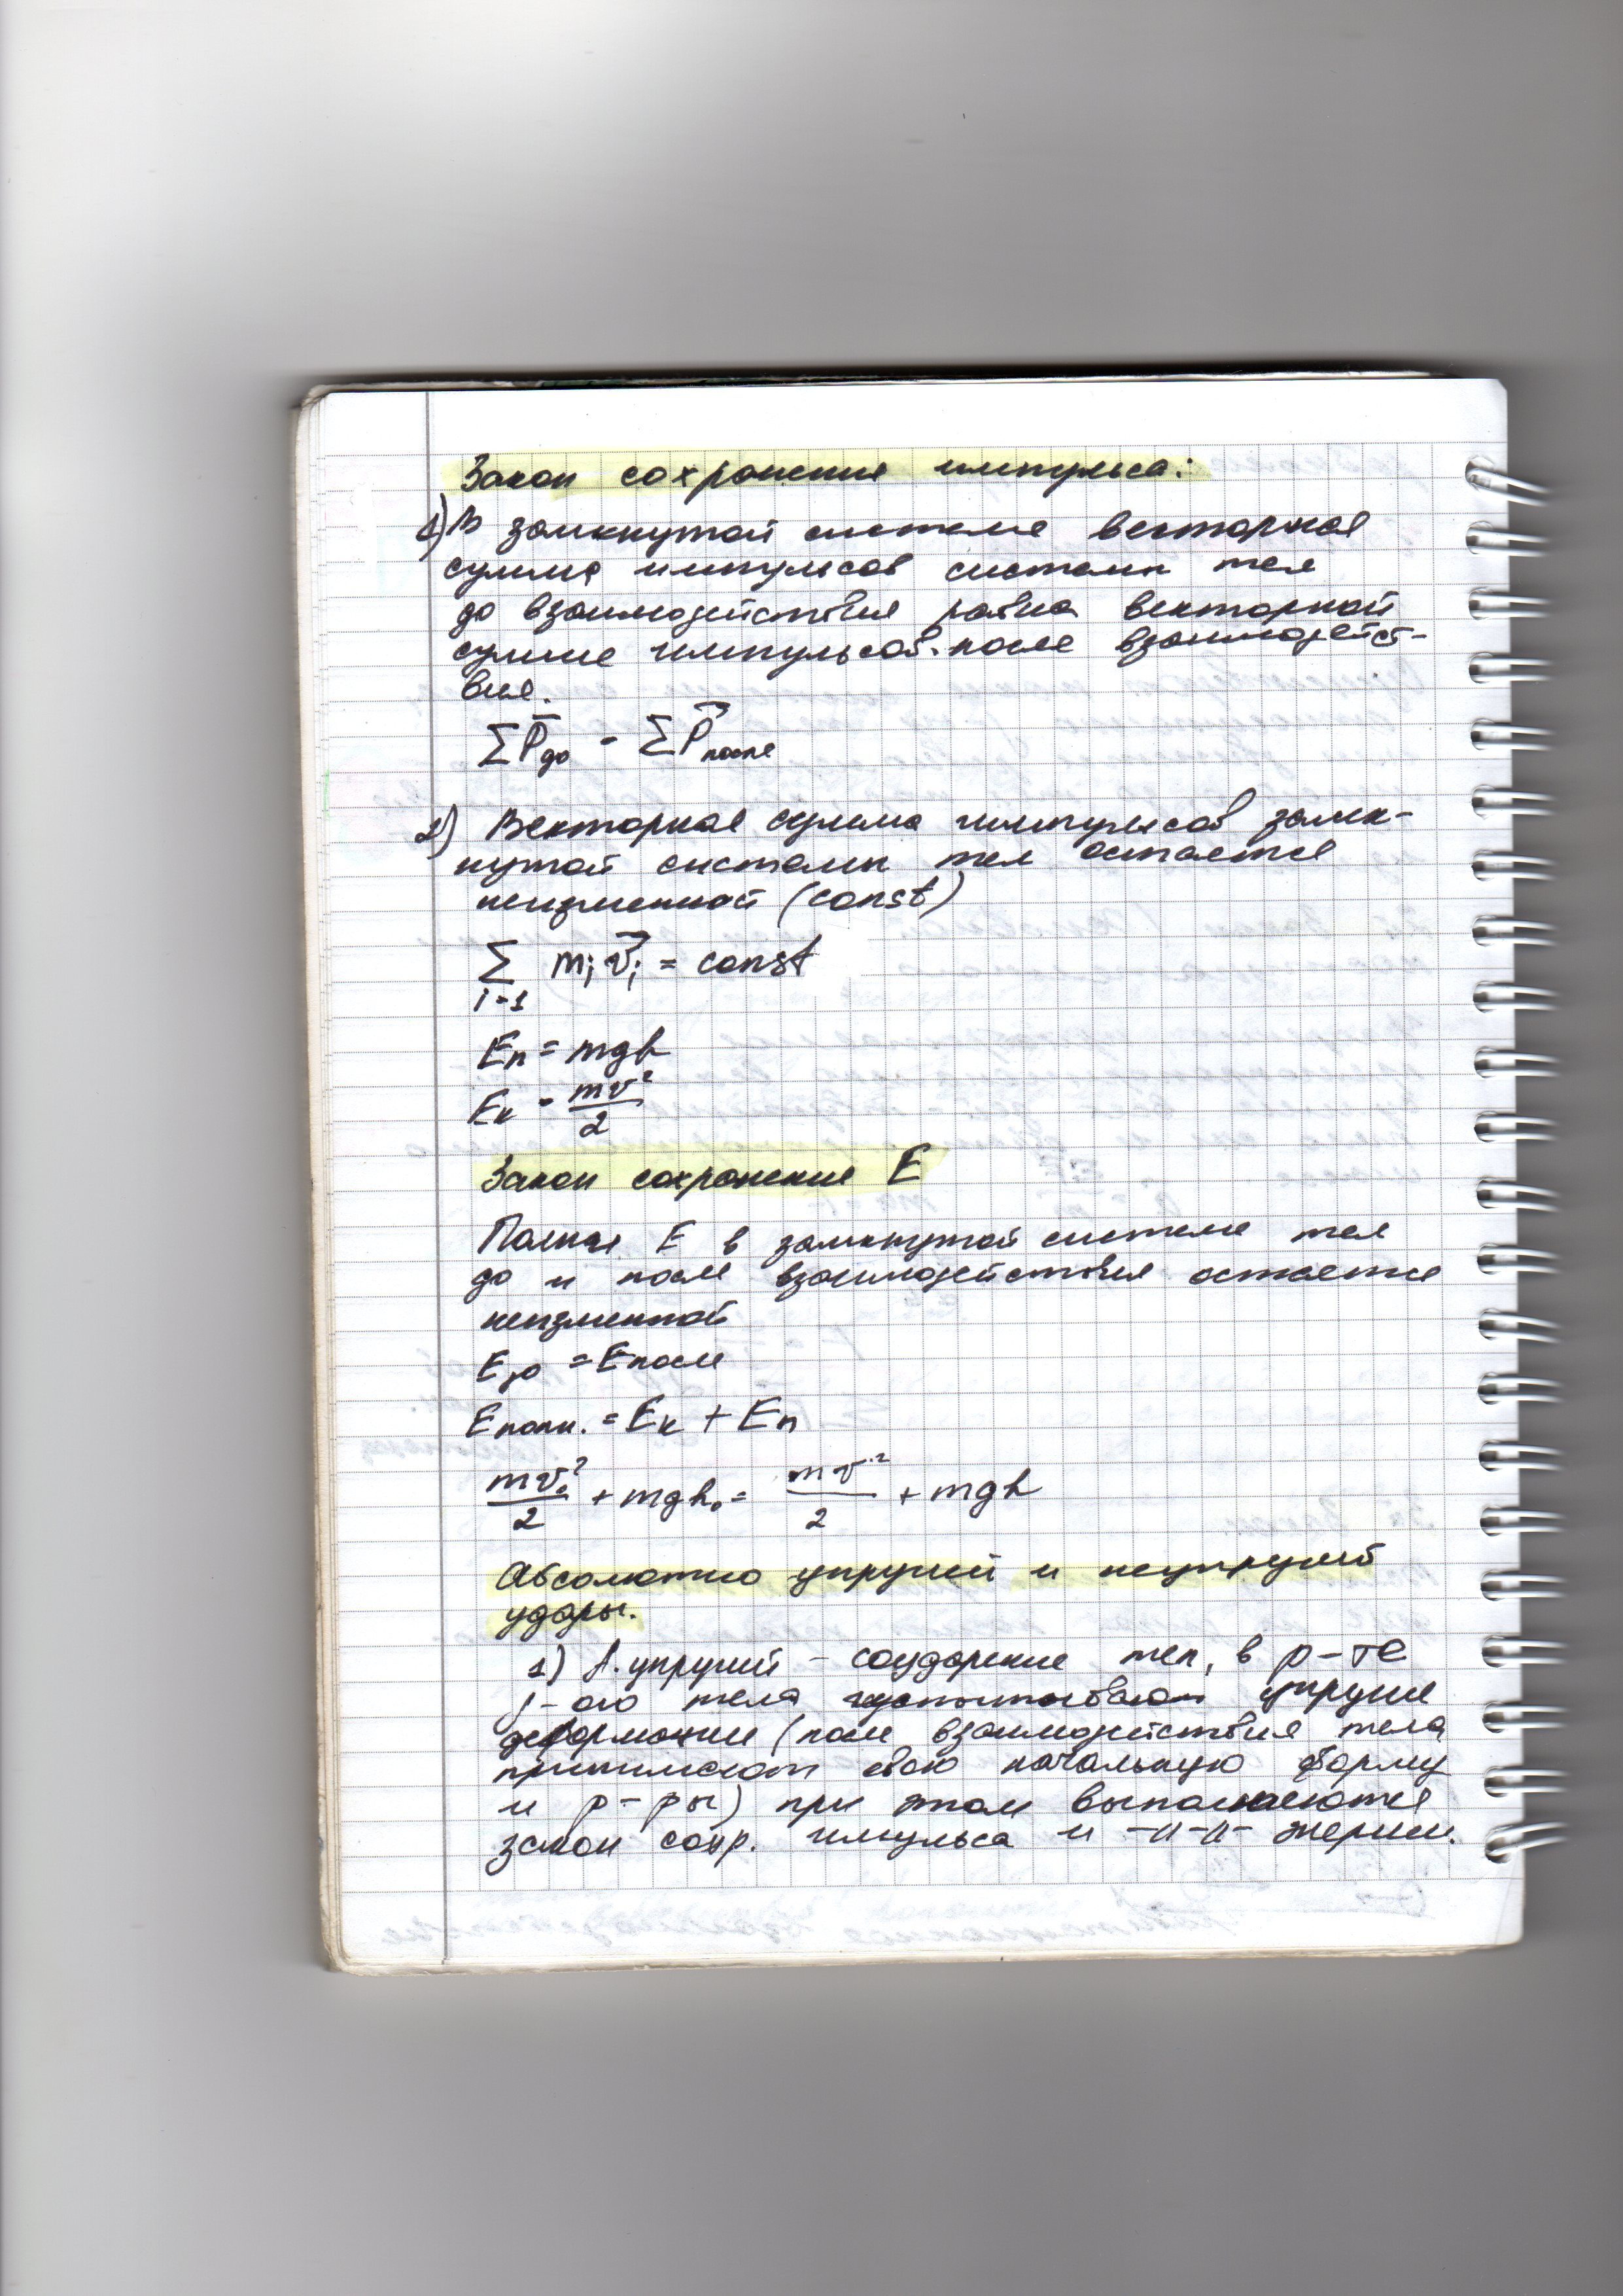 Закон сохранения импульса:
1) В замкнутой системе векторная
сумма импульсов системы тел
до взаимодействия равна векторной
сумме импульсов после взаимодейст-
вия.
∑P̅до = ∑P⃗после
2) Векторная сумма импульсов замк-
нутой системы тел остается
неизменной (const)
∑ mᵢv⃗ᵢ = const
i=1
Eп = mgh
Eк = mv²/2
Закон сохранения E
Полная E в замкнутой системе тел
до и после взаимодействия остается
неизменной
Eдо = Eпосле
Eполн. = Eк + Eп
mv₀²/2 + mgh₀ = mv²/2 + mgh
Абсолютно упругий и неупругий
удары.
1) А. упругий – соударение тел, в р-те
тела испытывают упругие
деформации (после взаимодействия тела
принимают свою начальную форму
и р-ры) при этом выполняются
закон сохр. импульса и -//-//- энергии.